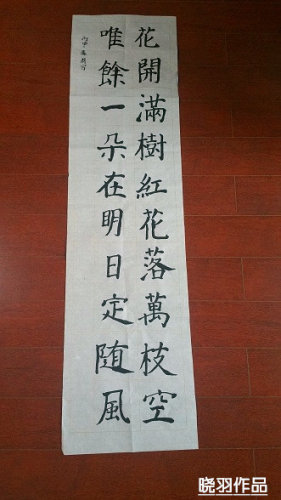 花開滿樹紅花落萬枝空
唯餘一朵在明日定随風
晓羽作品